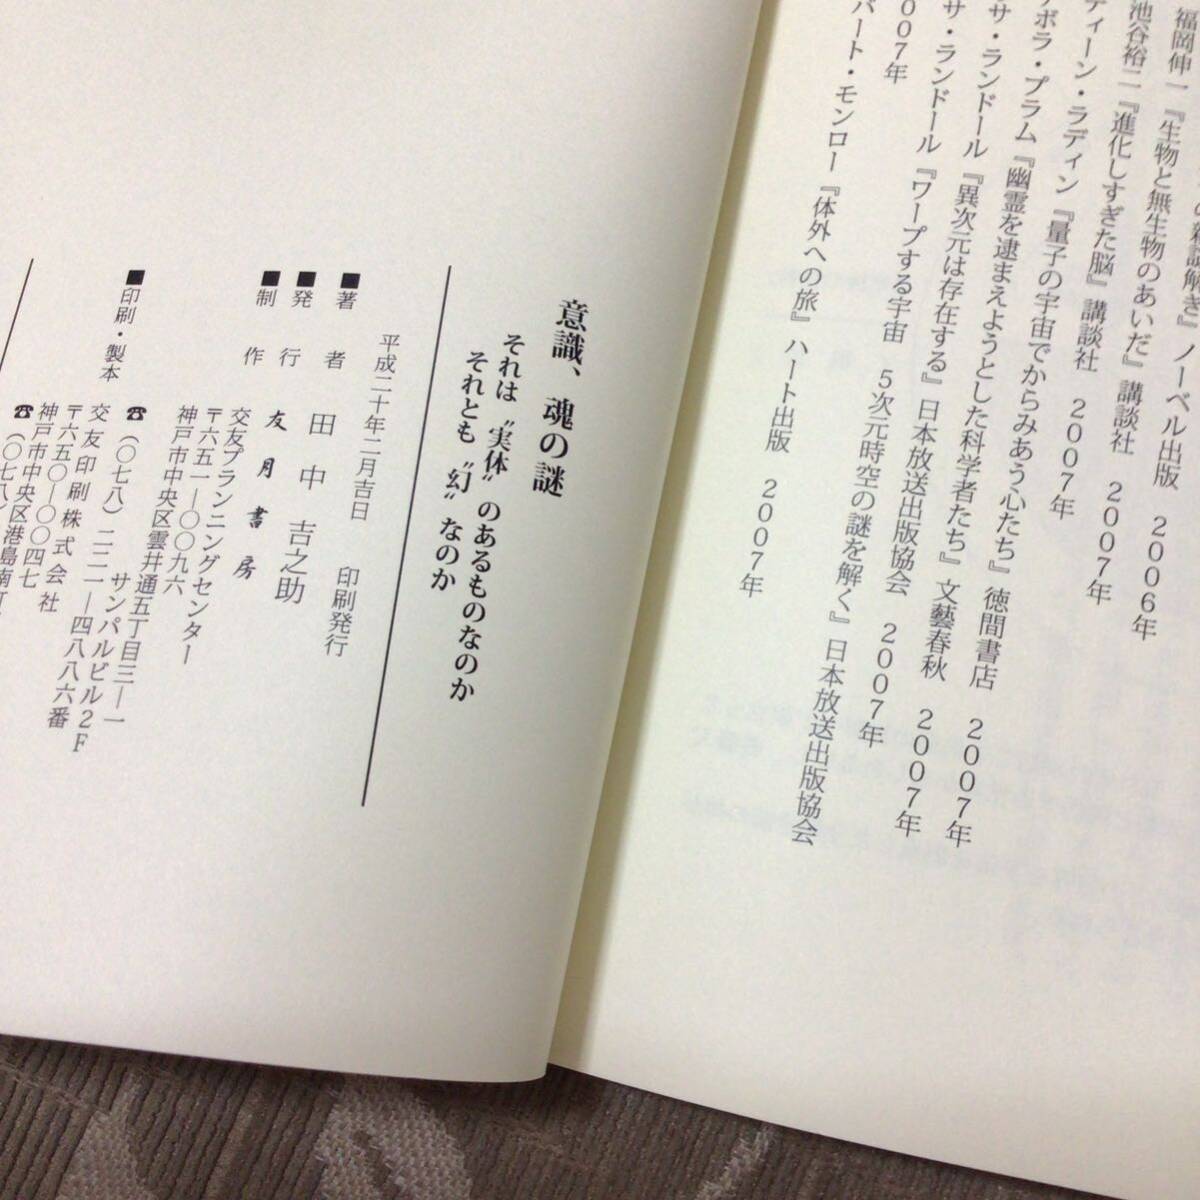 の雑談解き』ノーベル出版 2006年
福岡伸一『生物と無生物のあいだ』講談社 2007年
池谷裕二『進化しすぎた脳』講談社 2007年
ディーン・ラディン『量子の宇宙でからみあう心たち』徳間書店 2007年
ボラ・プラム『幽霊を逮まえようとした科学者たち』文藝春秋 2007年
サ・ランドール『異次元は存在する』日本放送出版協会 2007年
サ・ランドール『ワープする宇宙 5次元時空の謎を解く』日本放送出版協会
007年
バート・モンロー『体外への旅』ハート出版 2007年
意識、魂の謎
それは〝実体〟のあるものなのか
それとも〝幻〟なのか
平成二十年二月吉日 印刷発行
■著者 田中吉之助
■発行 友月書房
■制作 交友プランニングセンター
〒六五一―〇〇九六
神戸市中央区雲井通五丁目三―一
サンパルビル2F
☎(〇七八)二二一―四八八六番
■印刷・製本 交友印刷株式会社
〒六五〇―〇〇四七
神戸市中央区港島南町
☎(〇七八)